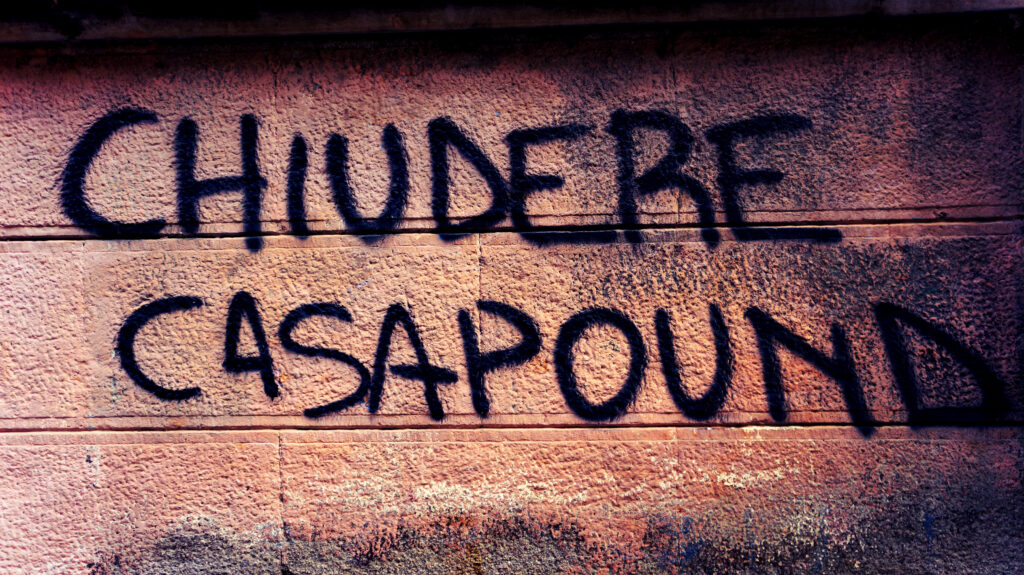 CHIUDERE
CASAPOUND